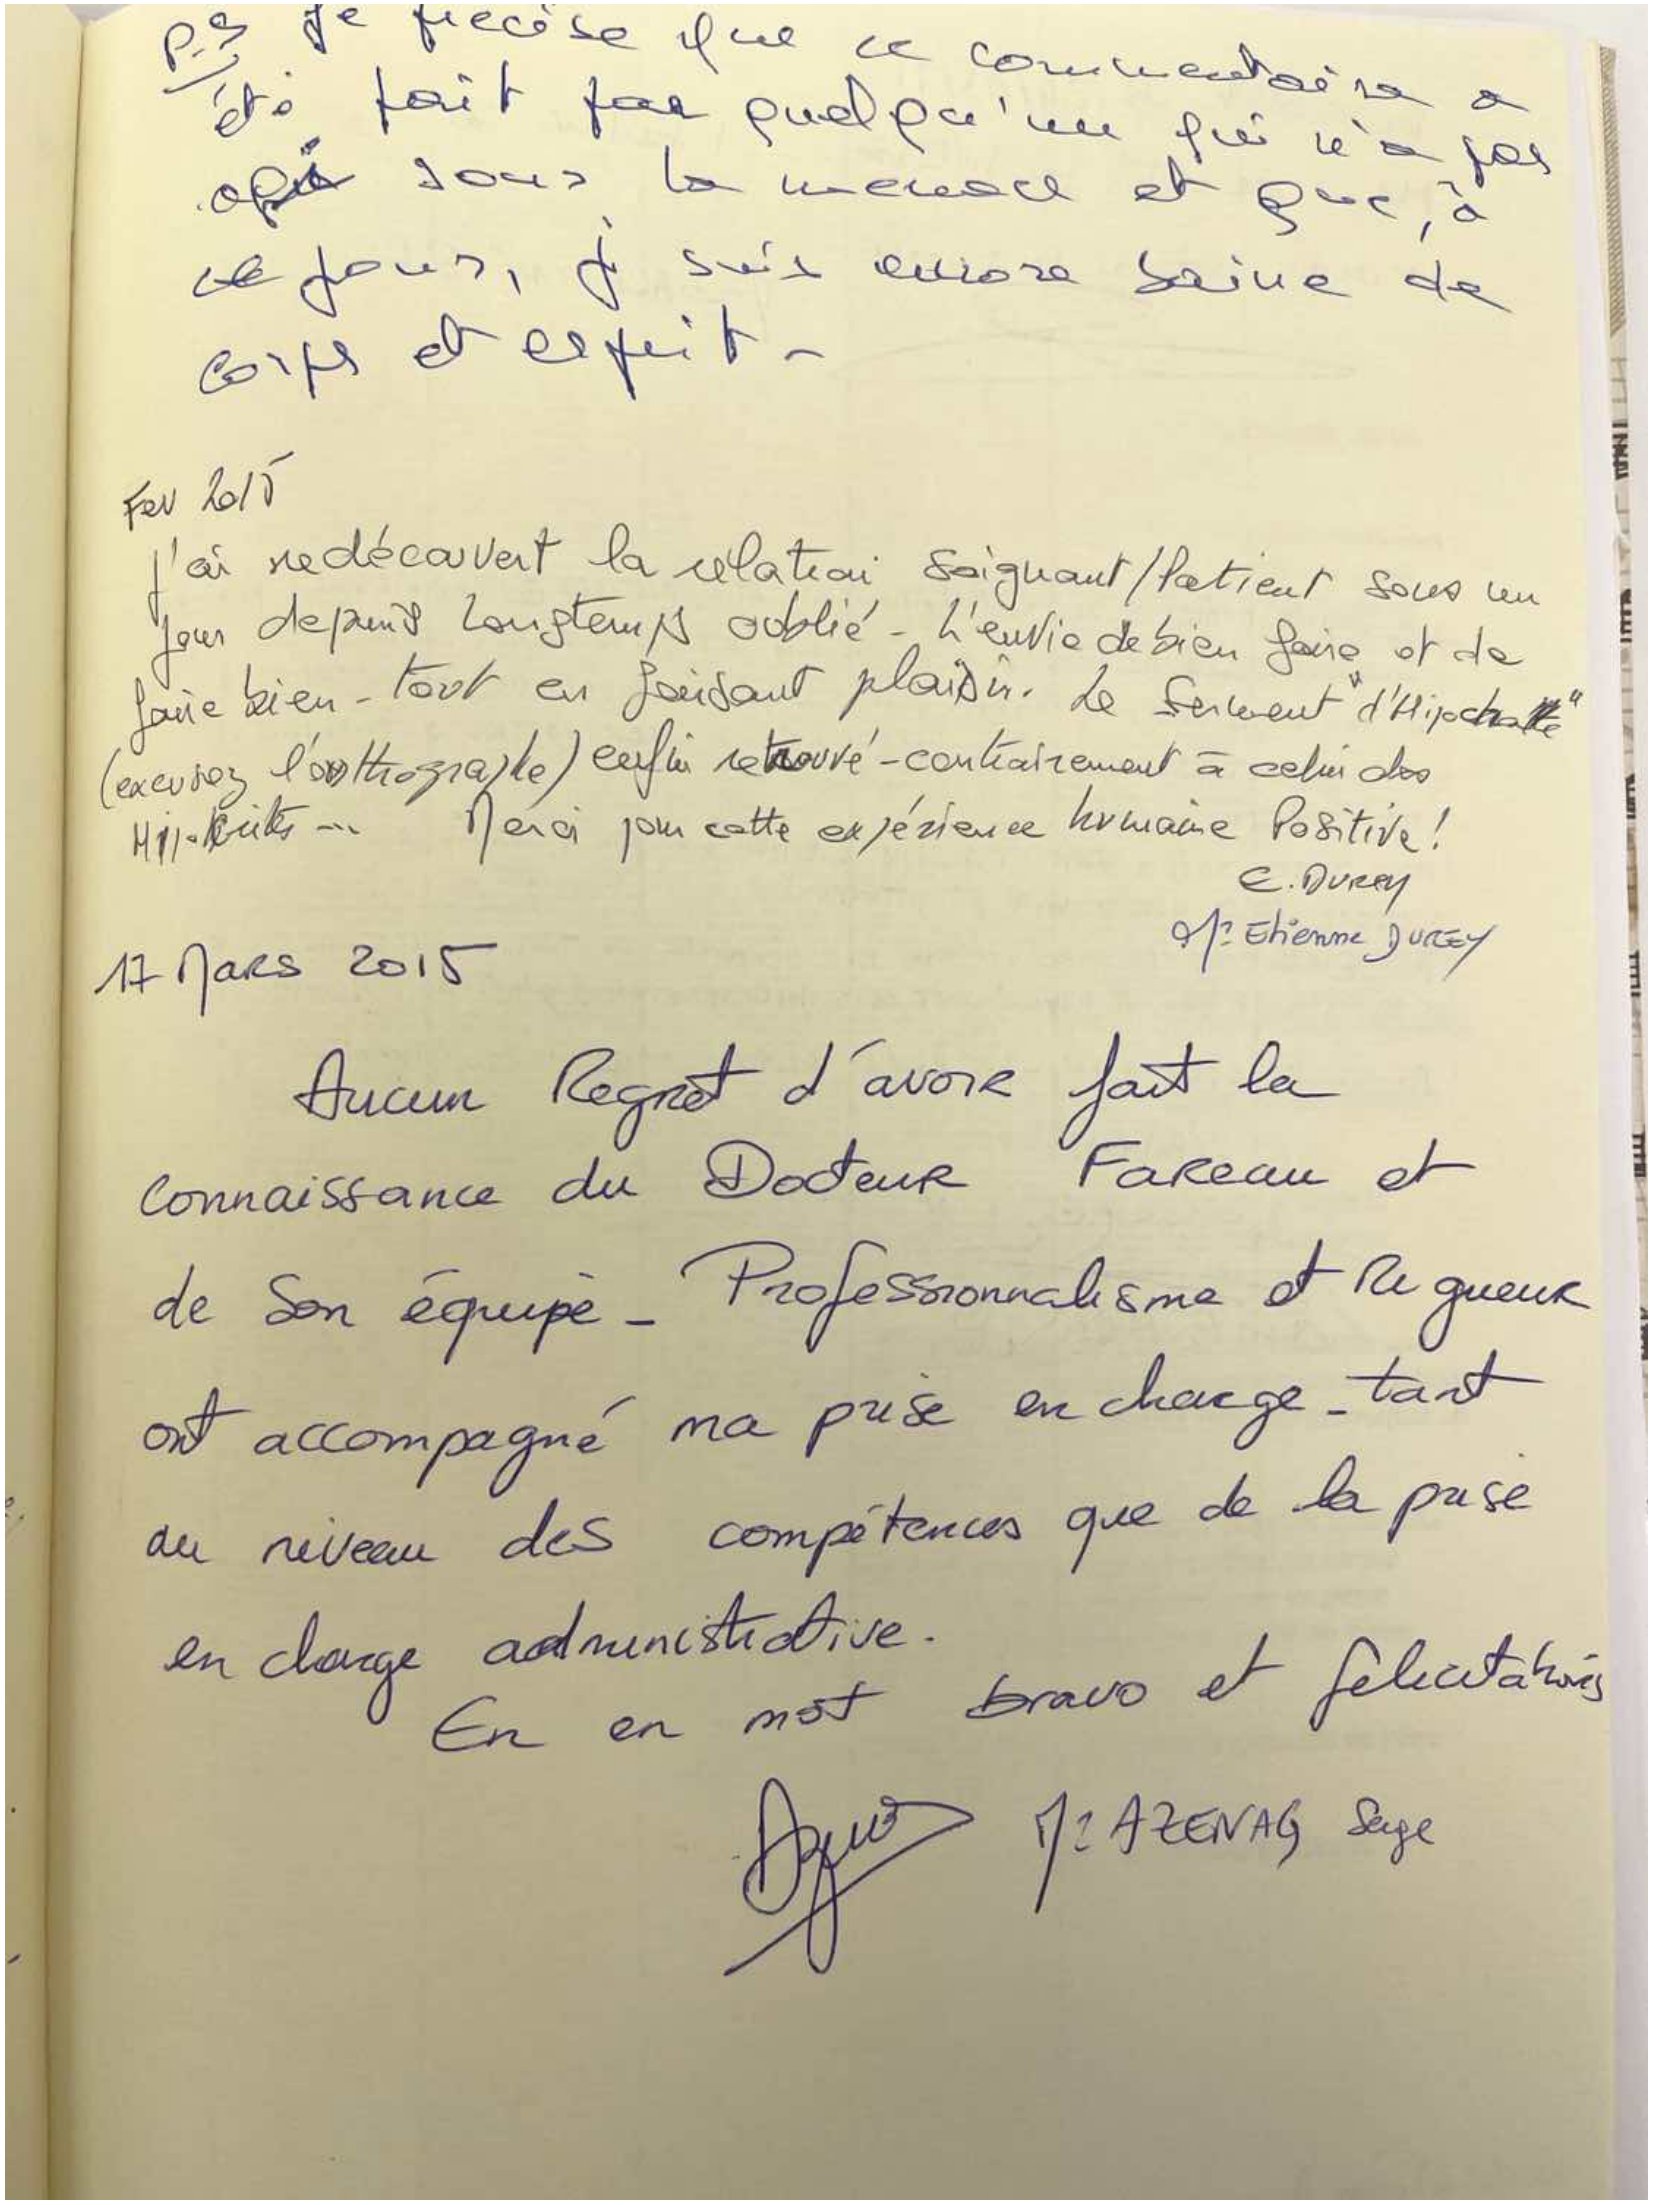 P.S Je precise que ce commentaire a
été fait par quelqu'un qui n'a pas
agi sous la menace et que, à
ce jour, j suis encore saine de
corps et esprit -
Fev 2015
J'ai redécouvert la relation Soignant/Patient sous un
jour depuis longtemps oublié - L'envie de bien faire et de
faire bien - tout en faisant plaisir. Le Serment "d'Hipochratte"
(excusez l'orthographe) enfin retrouvé - contrairement à celui des
Hippokrites ... Merci pour cette expérience humaine Positive!
E. DUREY
Mr Etienne DUREY
17 Mars 2015
Aucun Regret d'avoir fait la
connaissance du Docteur Fareau et
de Son équipe - Professionnalisme et Rigueur
ont accompagné ma prise en charge - tant
au niveau des compétences que de la prise
en charge administrative.
En en mot bravo et félicitations
Mr AZENAG Serge